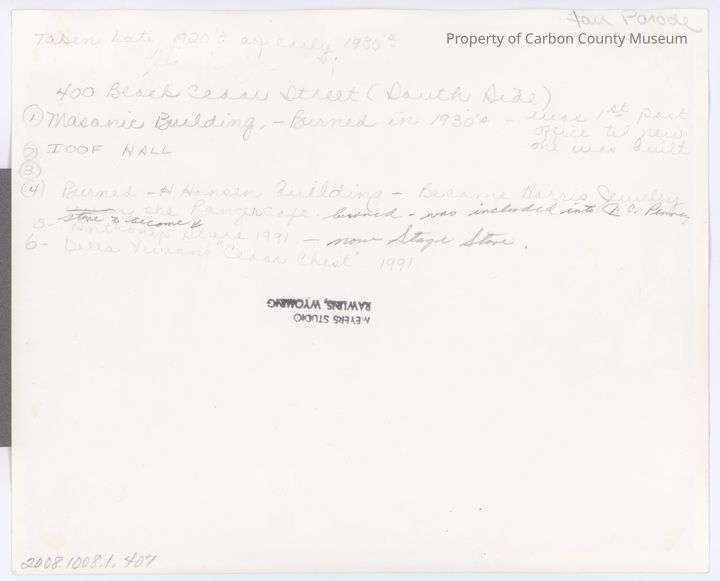 Fair Parade
Taken Late 1920's or early 1930's
Property of Carbon County Museum
400 Block Cedar Street (South Side)
① Masonic Building, - Burned in 1930's - was 1st post
office til new
one was built
② IOOF HALL
③
④ Burned - H Hansen Building - Became Harris Jewelry
the Ranger Cafe. burned - was included into J. C. Penney
store to become
5- Anthonys Store 1991 - now Stage Store.
6- Della Vivians "Cedar Chest" 1991
MEYERS STUDIO
RAWLINS, WYOMING
2008.1008.1.407